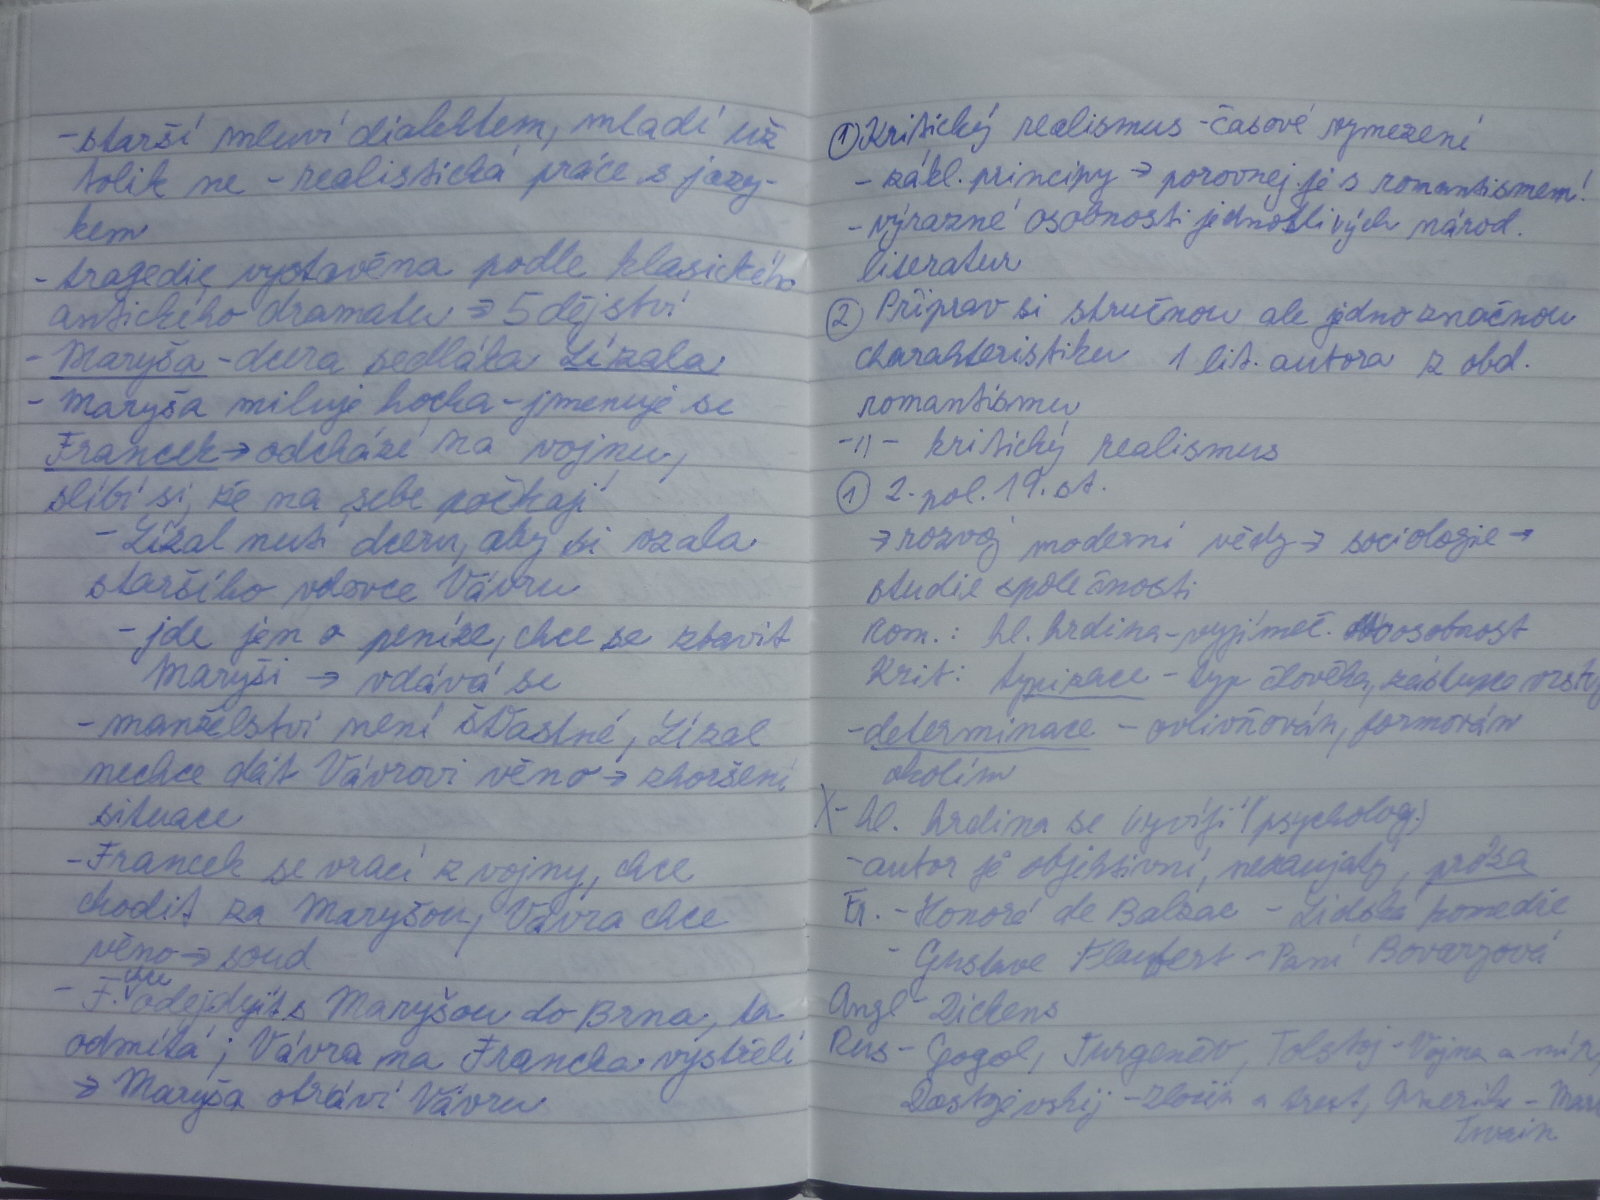 - starší mluví dialektem, mladí už
tolik ne - realistická práce s jazy-
kem
- tragedie vystavěna podle klasického
antického dramatu → 5 dějství
- Maryša - dcera sedláka Lízala
- Maryša miluje hocha - jmenuje se
Francek → odchází na vojnu,
slíbí si, že na sebe počkají
- Lízal nutí dceru, aby si vzala
staršího vdovce Vávru
- jde jen o peníze, chce se zbavit
Maryši → vdává se
- manželství není šťastné, Lízal
nechce dát Vávrovi věno → zhoršení
situace
- Francek se vrací z vojny, chce
chodit za Maryšou, Vávra chce
věno → soud
- F. chce odejdýt s Maryšou do Brna, ta
odmítá; Vávra na Francka vystřelí
→ Maryša otráví Vávru
① Kritický realismus - časové vymezení
- zákl. principy → porovnej je s romantismem!
- výrazné osobnosti jednotlivých národ.
literatur
② Připrav si stručnou ale jednoznačnou
charakteristiku 1 lit. autora z obd.
romantismu
-"- kritický realismus
① 2. pol. 19. st.
→ rozvoj moderní vědy → sociologie →
studie společnosti
Rom.: hl. hrdina - vyjímeč. osobnost
Krit: typizace - typ člověka, zástupce vrstvy
- determinace - ovlivňován, formován
okolím
X - hl. hrdina se vyvíjí (psycholog.)
- autor je objektivní, nezaujatý, próza
Fr. - Honoré de Balzac - Lidská komedie
- Gustave Flaubert - Paní Bovaryová
Angl - Dickens
Rus - Gogol, Turgeněv, Tolstoj - Vojna a mír,
Dostojevskij - Zločin a trest, Amerika - Mark
Twain